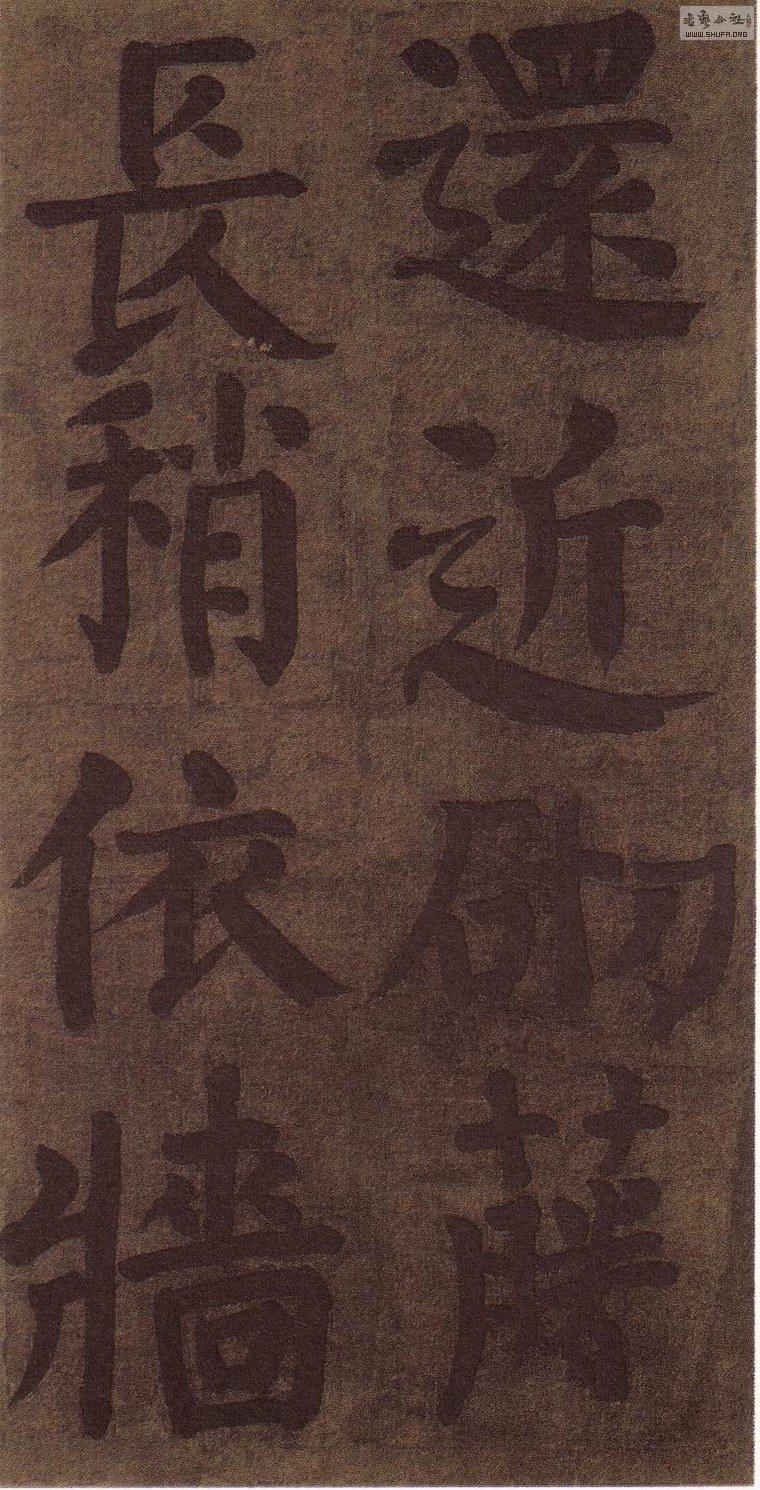 還近砌藤
長稍依牆
書藝公社
WWW.SHUFA.ORG